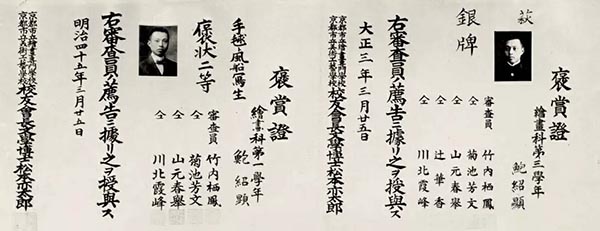 褒賞證
繪畫科第三學年
鮑紹顕
萩
銀牌
審查員 竹内栖鳳
仝 菊池芳文
仝 山元春擧
仝 辻華香
仝 川北霞峰
右審查員ノ薦告ニ據リ之ヲ授與ス
大正三年三月廿五日
京都市立繪畫專門學校
京都市立美術工藝學校
校友會長文學博士松本亦太郎
褒賞證
繪畫科第一學年
鮑紹顕
手毬ニ風船寫生
褒状二等
審查員 竹内栖鳳
仝 菊池芳文
仝 山元春擧
仝 川北霞峰
右審查員ノ薦告ニ據リ之ヲ授與ス
明治四十五年三月廿五日
京都市立繪畫專門學校
京都市立美術工藝學校
校友會長文學博士松本亦太郎